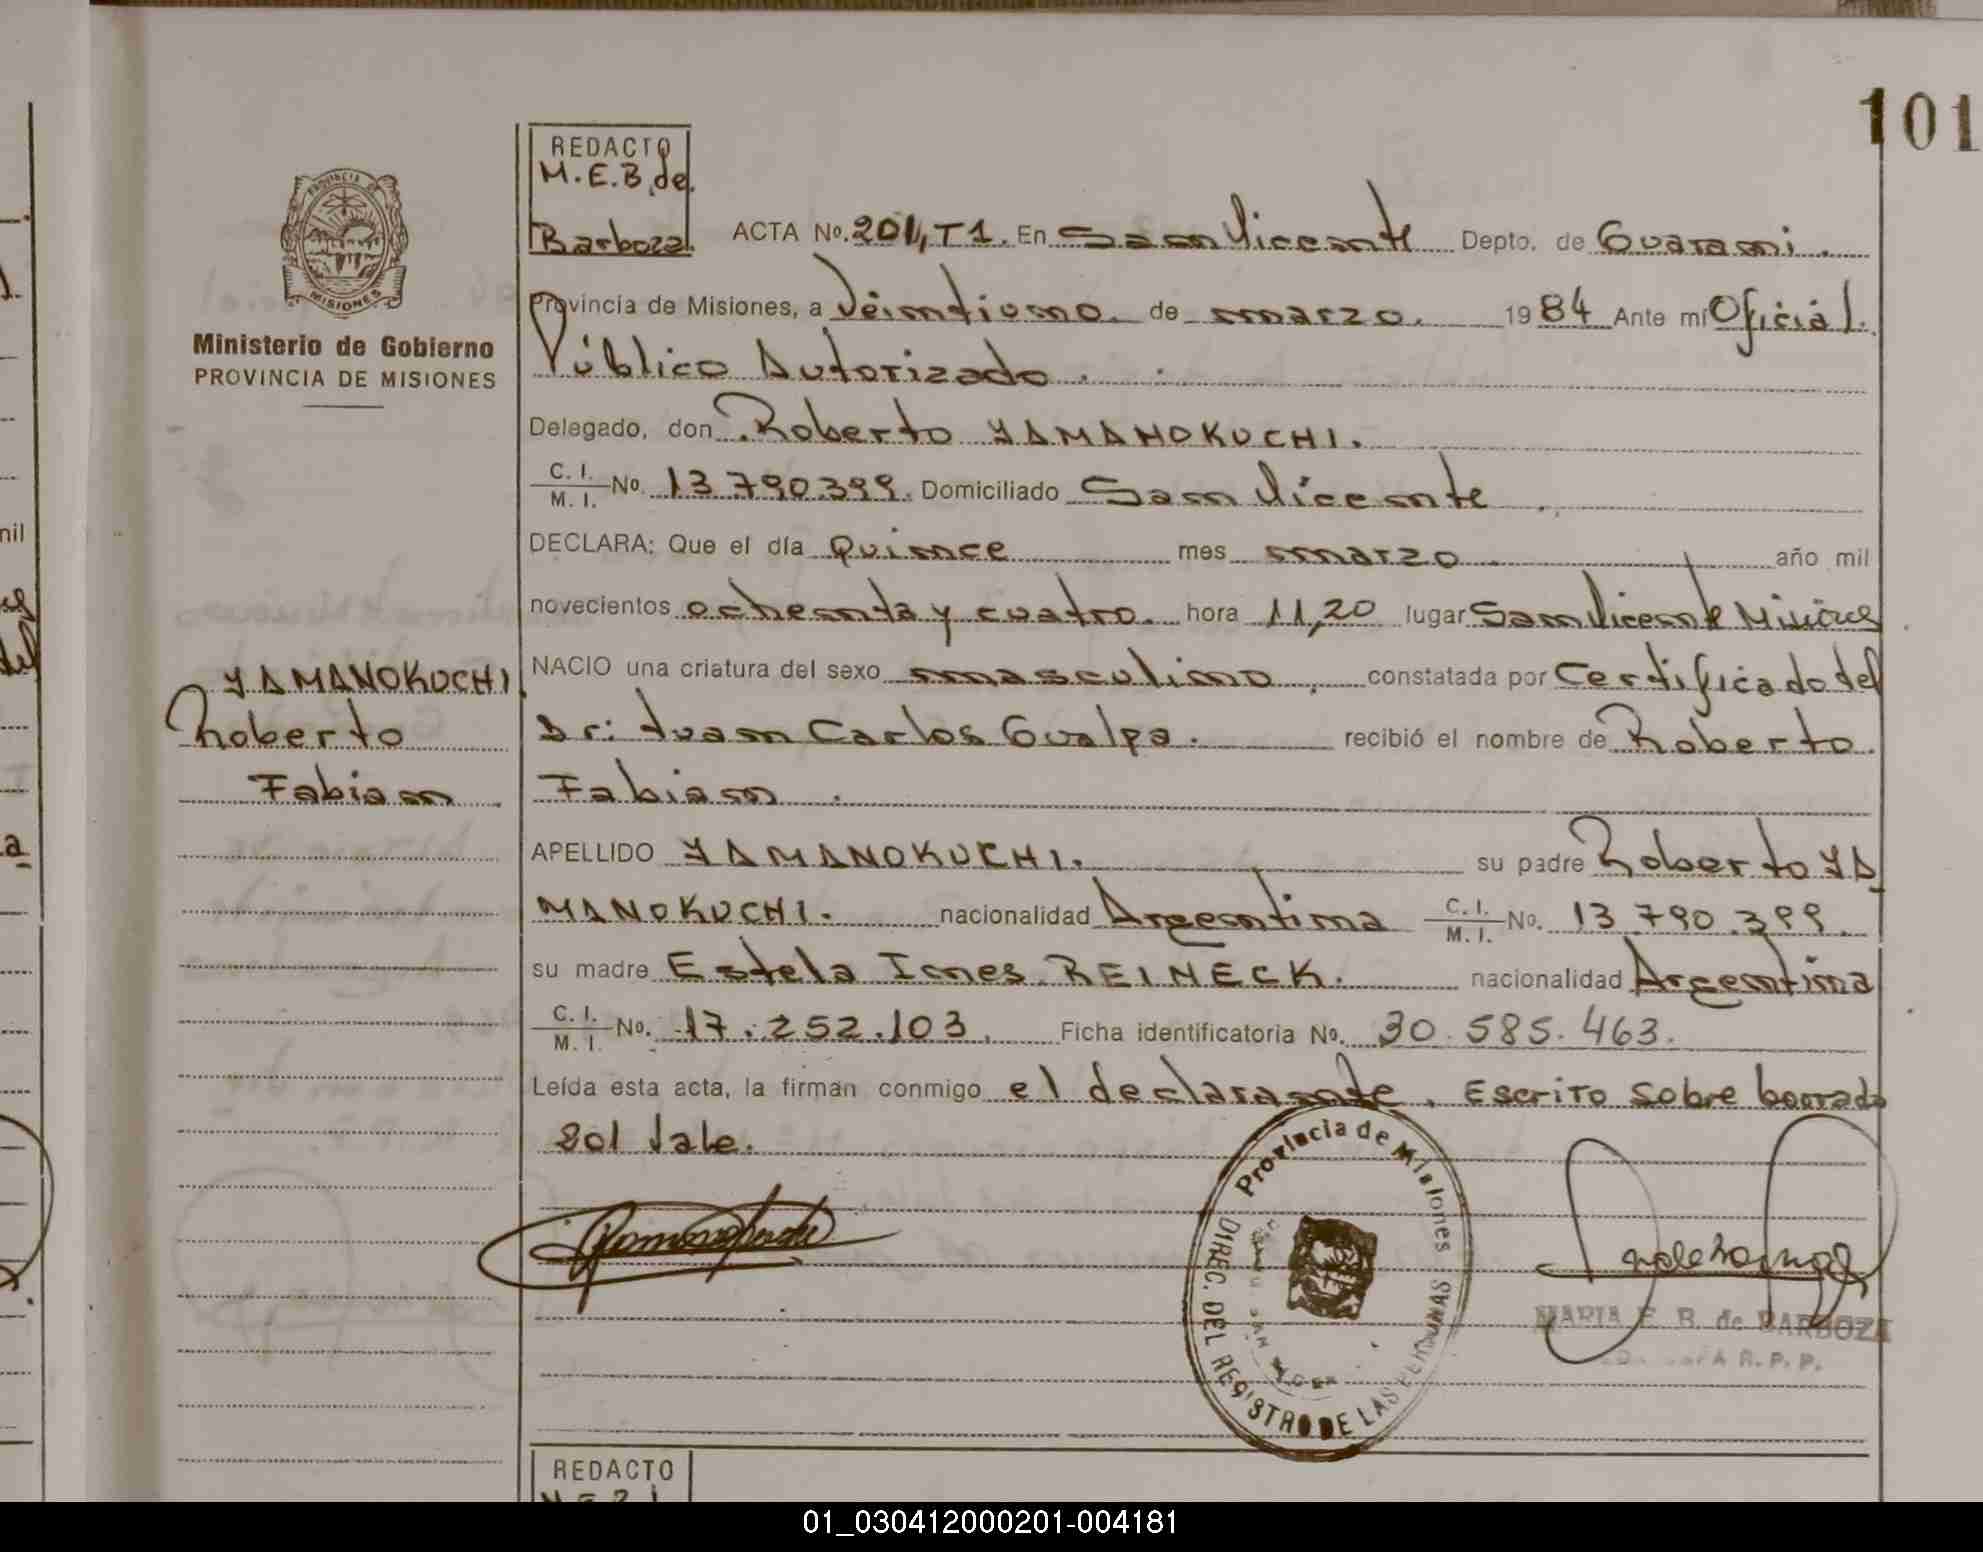 101
REDACTO
M.E.B. de
Barboza.
ACTA No. 201, T1. En San Vicente Depto. de Guarani.
Provincia de Misiones, a Veintiuno de marzo. 1984 Ante mí Oficial.
Público Autorizado.
PROVINCIA DE
MISIONES
Ministerio de Gobierno
PROVINCIA DE MISIONES
Delegado, don Roberto YAMANOKUCHI.
C. I. / M. I. No. 13.790.399. Domiciliado San Vicente
DECLARA: Que el día Quince mes marzo año mil
novecientos ochenta y cuatro. hora 11,20 lugar San Vicente Misiones
NACIO una criatura del sexo masculino, constatada por Certificado del
Dr: Juan Carlos Gualpa. recibió el nombre de Roberto
Fabian.
YAMANOKUCHI
Roberto
Fabian
APELLIDO YAMANOKUCHI. su padre Roberto YA
MANOKUCHI. nacionalidad Argentina C. I. / M. I. No. 13.790.399.
su madre Estela Ines REINECK. nacionalidad Argentina
C. I. / M. I. No. 17.252.103. Ficha identificatoria No. 30.585.463.
Leída esta acta, la firman conmigo el declarante. Escrito sobre borrado
201 Vale.
Provincia de Misiones
DIREC. DEL REGISTRO DE LAS PERSONAS
MARIA E. B. de BARBOZA
R. P. P.
REDACTO
nil
01_030412000201-004181